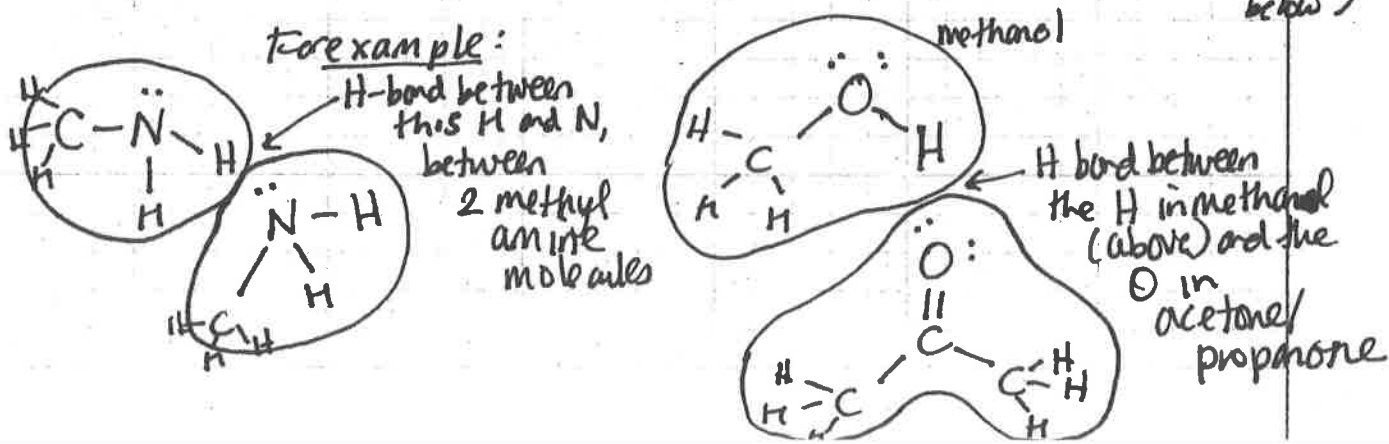 below)
For example:
H-bond between
this H and N,
between
2 methyl
amine
molecules
H
H
H
C - N
H
H
N - H
H
C
H
H
H
methanol
O
H
H
C
H
H
H bond between
the H in methanol
(above) and the
O in
acetone/
propanone
O
C
H
H
C
C
H
H
H
H